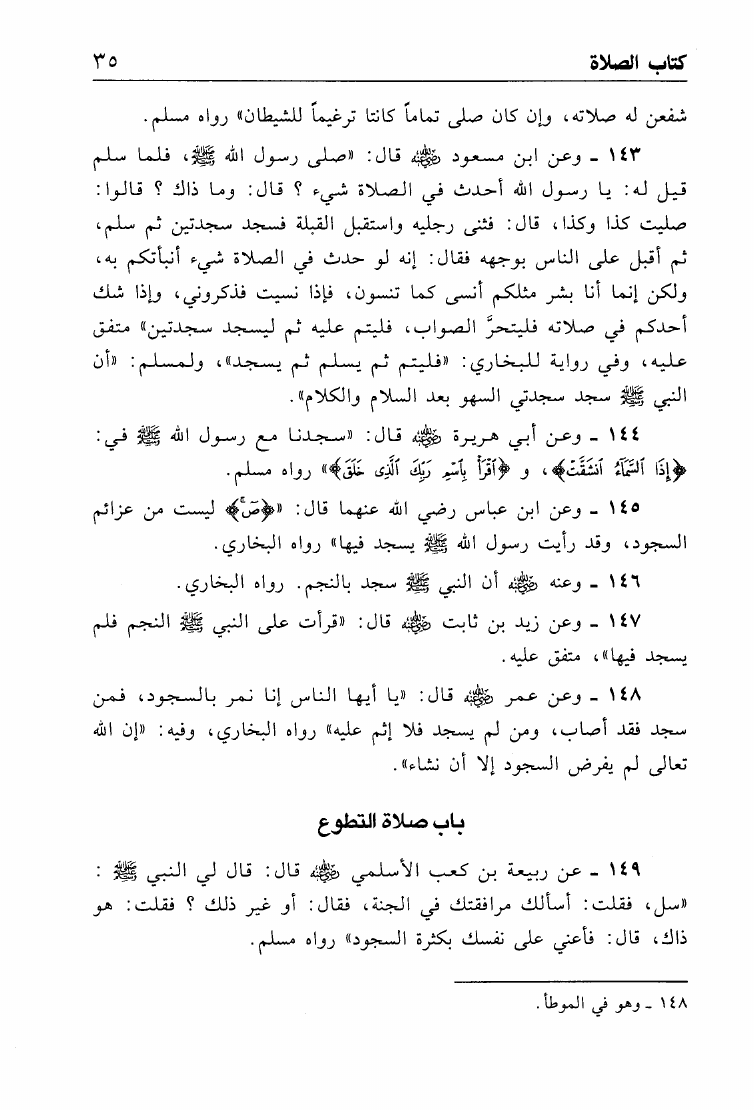 كتاب الصلاة ٣٥
شفعن له صلاته، وإن كان صلى تماماً كانتا ترغيماً للشيطان» رواه مسلم.
١٤٣ ـ وعن ابن مسعود رضي الله عنه قال: «صلى رسول الله ﷺ، فلما سلم
قيل له: يا رسول الله أحدث في الصلاة شيء ؟ قال: وما ذاك ؟ قالوا:
صليت كذا وكذا، قال: فثنى رجليه واستقبل القبلة فسجد سجدتين ثم سلم،
ثم أقبل على الناس بوجهه فقال: إنه لو حدث في الصلاة شيء أنبأتكم به،
ولكن إنما أنا بشر مثلكم أنسى كما تنسون، فإذا نسيت فذكروني، وإذا شك
أحدكم في صلاته فليتحرَّ الصواب، فليتم عليه ثم ليسجد سجدتين» متفق
عليه، وفي رواية للبخاري: «فليتم ثم يسلم ثم يسجد»، ولمسلم: «أن
النبي ﷺ سجد سجدتي السهو بعد السلام والكلام».
١٤٤ ـ وعن أبي هريرة رضي الله عنه قال: «سجدنا مع رسول الله ﷺ في:
﴿إِذَا ٱلسَّمَآءُ ٱنشَقَّتْ﴾، و ﴿ٱقْرَأْ بِٱسْمِ رَبِّكَ ٱلَّذِى خَلَقَ﴾» رواه مسلم.
١٤٥ ـ وعن ابن عباس رضي الله عنهما قال: «﴿صٓ﴾ ليست من عزائم
السجود، وقد رأيت رسول الله ﷺ يسجد فيها» رواه البخاري.
١٤٦ ـ وعنه رضي الله عنه أن النبي ﷺ سجد بالنجم. رواه البخاري.
١٤٧ ـ وعن زيد بن ثابت رضي الله عنه قال: «قرأت على النبي ﷺ النجم فلم
يسجد فيها»، متفق عليه.
١٤٨ ـ وعن عمر رضي الله عنه قال: «يا أيها الناس إنا نمر بالسجود، فمن
سجد فقد أصاب، ومن لم يسجد فلا إثم عليه» رواه البخاري، وفيه: «إن الله
تعالى لم يفرض السجود إلا أن نشاء».
باب صلاة التطوع
١٤٩ ـ عن ربيعة بن كعب الأسلمي رضي الله عنه قال: قال لي النبي ﷺ :
«سل، فقلت: أسألك مرافقتك في الجنة، فقال: أو غير ذلك ؟ فقلت: هو
ذاك، قال: فأعني على نفسك بكثرة السجود» رواه مسلم.
١٤٨ ـ وهو في الموطأ.